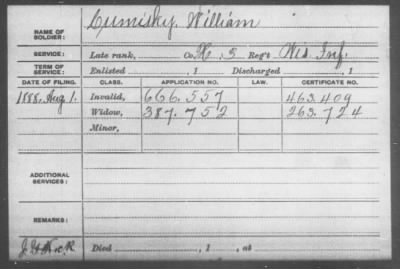 NAME OF SOLDIER: Cumisky, William
SERVICE: Late rank, Co. K, 3 Reg't Inf.
TERM OF SERVICE: Enlisted , 1 Discharged , 1
DATE OF FILING. CLASS. APPLICATION NO. LAW. CERTIFICATE NO.
1888, Aug 1. Invalid, 666.557 463.409
Widow, 387.752 263.724
Minor,
ADDITIONAL SERVICES:
REMARKS:
Died , 1 , at